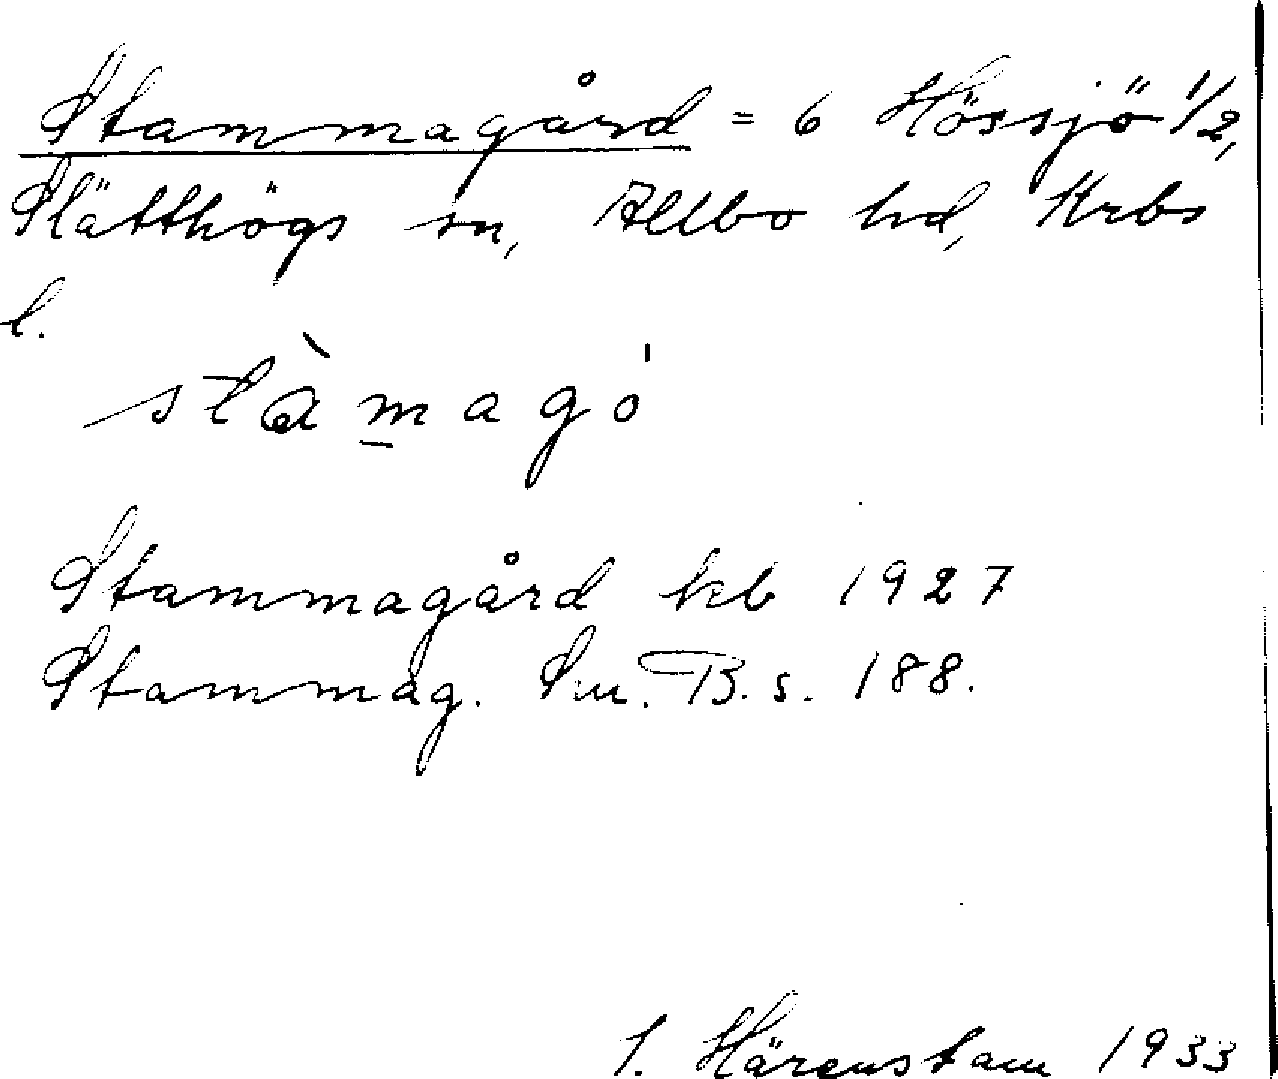 Stammagård = 6 Hössjö 1/2,
Slätthögs sn, Allbo hd, Krbs
l.
stàmagó
Stammagård kb 1927
Stammag. Sm. B. s. 188.
I. Härenstam 1933